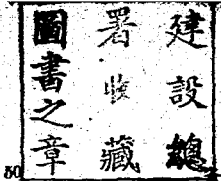 建設總
署收藏
圖書之章
50